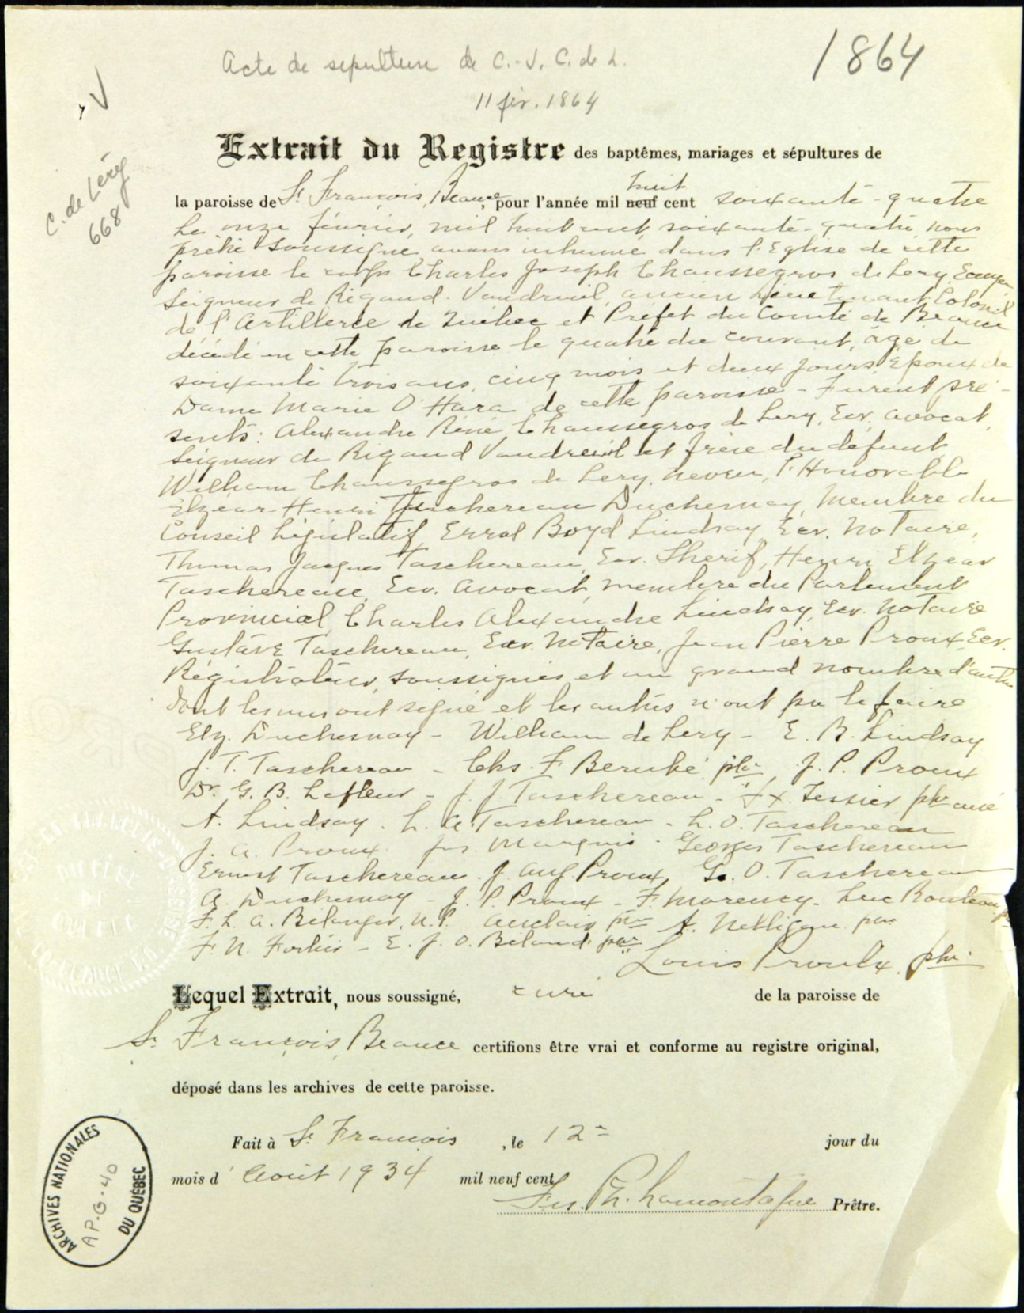 Acte de sépulture de C.-J. C. de L.
11 fév. 1864
1864
C. de Léry
668
Extrait du Registre des baptêmes, mariages et sépultures de
la paroisse de St François, Beauce, pour l'année mil neuf huit cent soixante-quatre
Le onze février, mil huit cent soixante-quatre, nous
prêtre soussigné avons inhumé dans l'Eglise de cette
paroisse le corps Charles Joseph Chaussegros de Lery Ecuyer
Seigneur de Rigaud-Vaudreuil, ancien Lieutenant Colonel
de l'Artillerie de Québec et Préfet du Comté de Beauce
décédé en cette paroisse le quatre du courant, âgé de
soixante trois ans, cinq mois et deux jours Epoux de
Dame Marie O'Hara de cette paroisse - Furent pré-
sents: Alexandre René Chaussegros de Lery, Ecr, avocat,
Seigneur de Rigaud Vaudreuil et frère du défunt,
William Chaussegros de Lery, neveu, l'Honorable
Elzear Henri Juchereau Duchesnay, Membre du
Conseil Législatif, Errol Boyd Lindsay, Ecr. Notaire,
Thomas Jacques Taschereau, Ecr. Sherif, Henri Elzear
Taschereau, Ecr. avocat, membre du Parlement
Provincial, Charles Alexandre Lindsay, Ecr. Notaire
Gustave Taschereau, Ecr. Notaire, Jean Pierre Proux, Ecr.
Régistrateur, soussignés et un grand nombre d'autres
dont les uns ont signé et les autres n'ont pu le faire
Elz. Duchesnay - William de Lery - E. B. Lindsay
J. T. Taschereau - Chs F Berubé ptre, J. P. Proux
Dr. G. B. Lafleur - J. J Taschereau - Fx Tessier ptre curé
A. Lindsay. L. A. Taschereau - L. O. Taschereau
J. A. Proux. Jos Marquis - Georges Taschereau
Ernest Taschereau J. Aug Proux, G. O. Taschereau
A. Duchesnay - J. P. Proux - F Morency - Luc
F. L. A. Belanger, N.P. Auclair ptre A. Nelligan ptre
F. N. Fortier - E. J. O. Beland, ptre
Louis Proulx ptre.
Lequel Extrait, nous soussigné, curé de la paroisse de
St François, Beauce certifions être vrai et conforme au registre original,
déposé dans les archives de cette paroisse.
Fait à St François, le 12e jour du
mois d'Août 1934 mil neuf cent
Ph. Lamontagne Prêtre.
ARCHIVES NATIONALES
AP-G-40
DU QUÉBEC